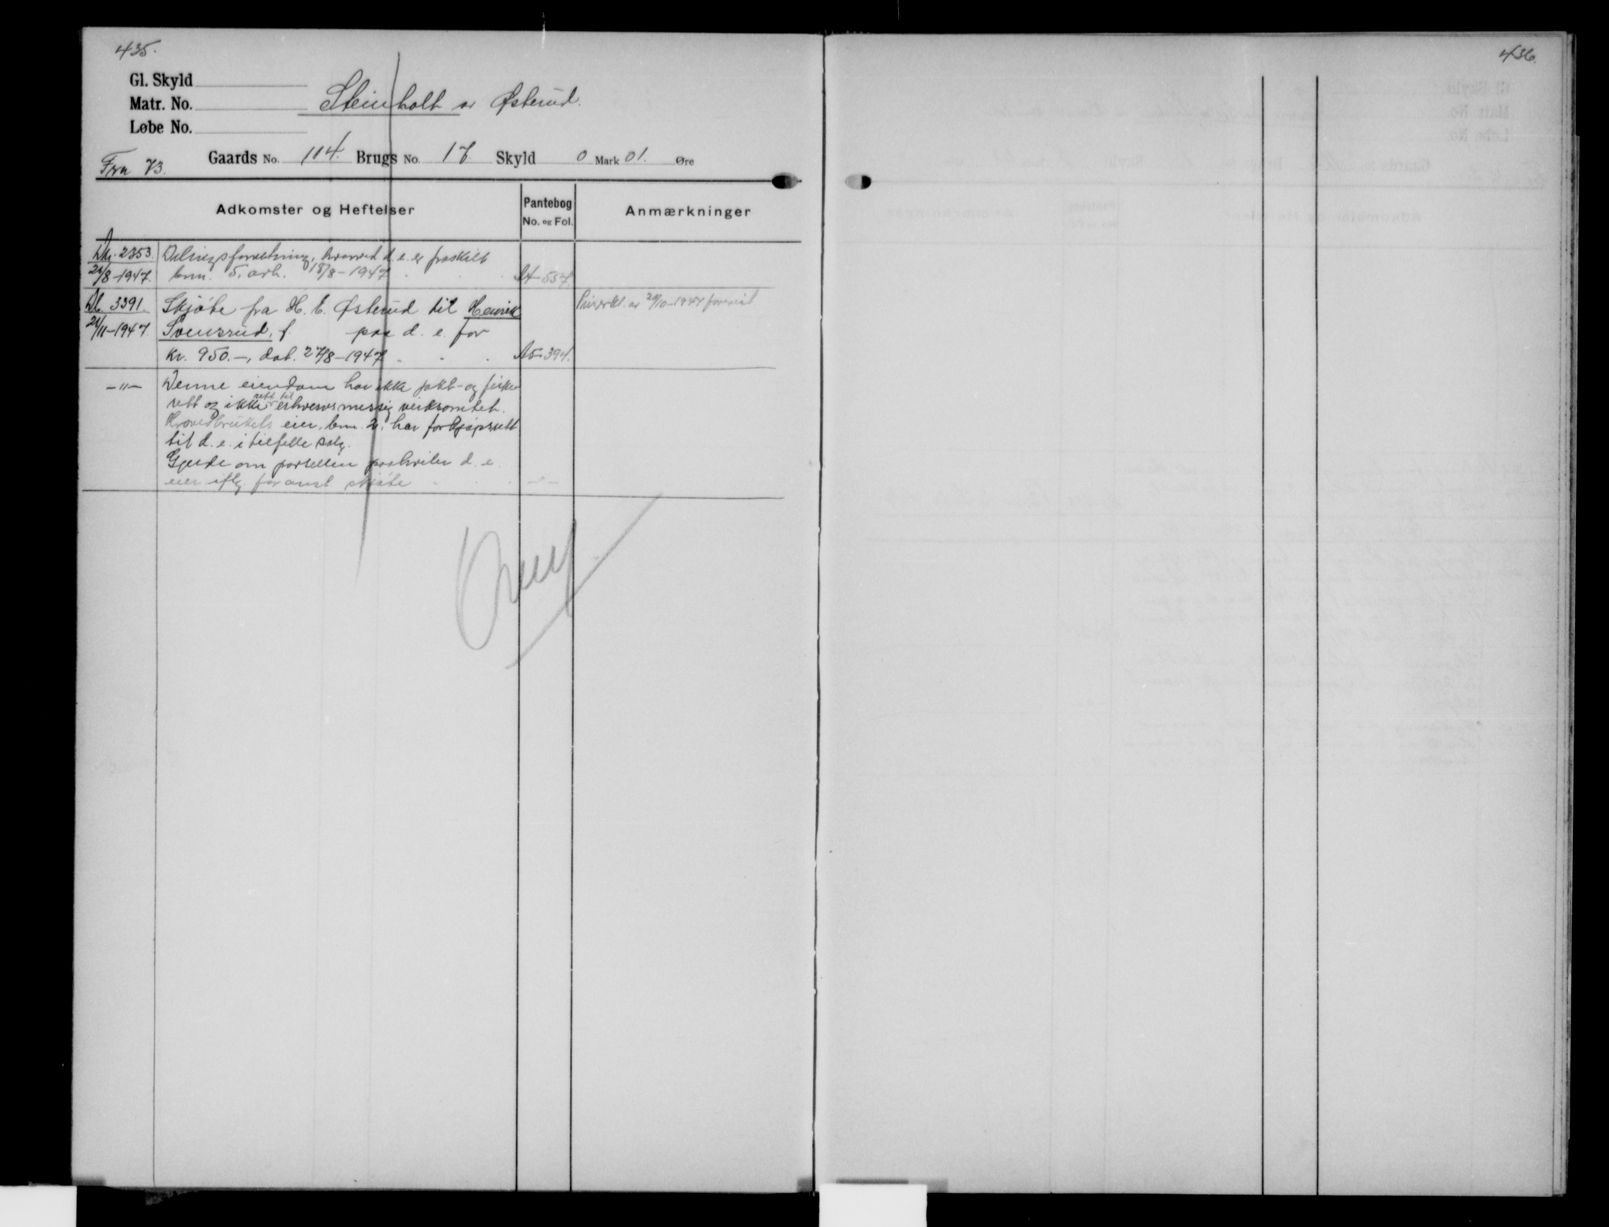 435.
436.
Gl. Skyld
Matr. No.
Løbe No.
Steinholt av Østerud.
Fra 73.
Gaards No. 114. Brugs No. 17 Skyld 0 Mark 01. Øre
Adkomster og Heftelser
Pantebog
No. og Fol.
Anmærkninger
Db. 2353.
21/8-1947.
Delingsforretning, hvorved d. e. er fraskilt
bnr. 5, avh. 18/8-1947
A4-557.
Db. 3391.
21/11-1947.
Skjøte fra H. C. Østerud til Henrik
Svensrud, f. paa d. e. for
kr. 950.-, dat. 27/8-1947
A5-394.
av 20/10-1947 forevist
-"-
Denne eiendom har ikke jakt- og fiske
rett og ikke rett til erhvervsmessig virksomhet.
Hovedbrukets eier, bnr. 2, har forkjøpsrett
til d. e. i tilfelle salg.
Gjerde om parsellen paahviler d. e.
eier iflg. foranst. skjøte
-"-